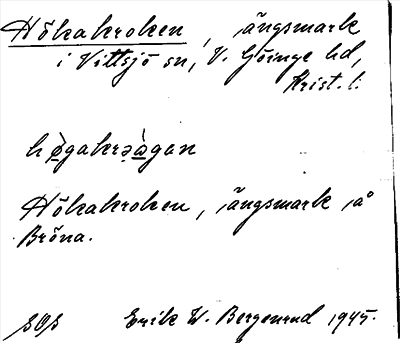 Hökakroken, ängsmark
i Vittsjö sn, V. Göinge hd,
Krist. l.
Hökakroken, ängsmark på
Bröna.
SOS Erik W. Bergenrud 1945.